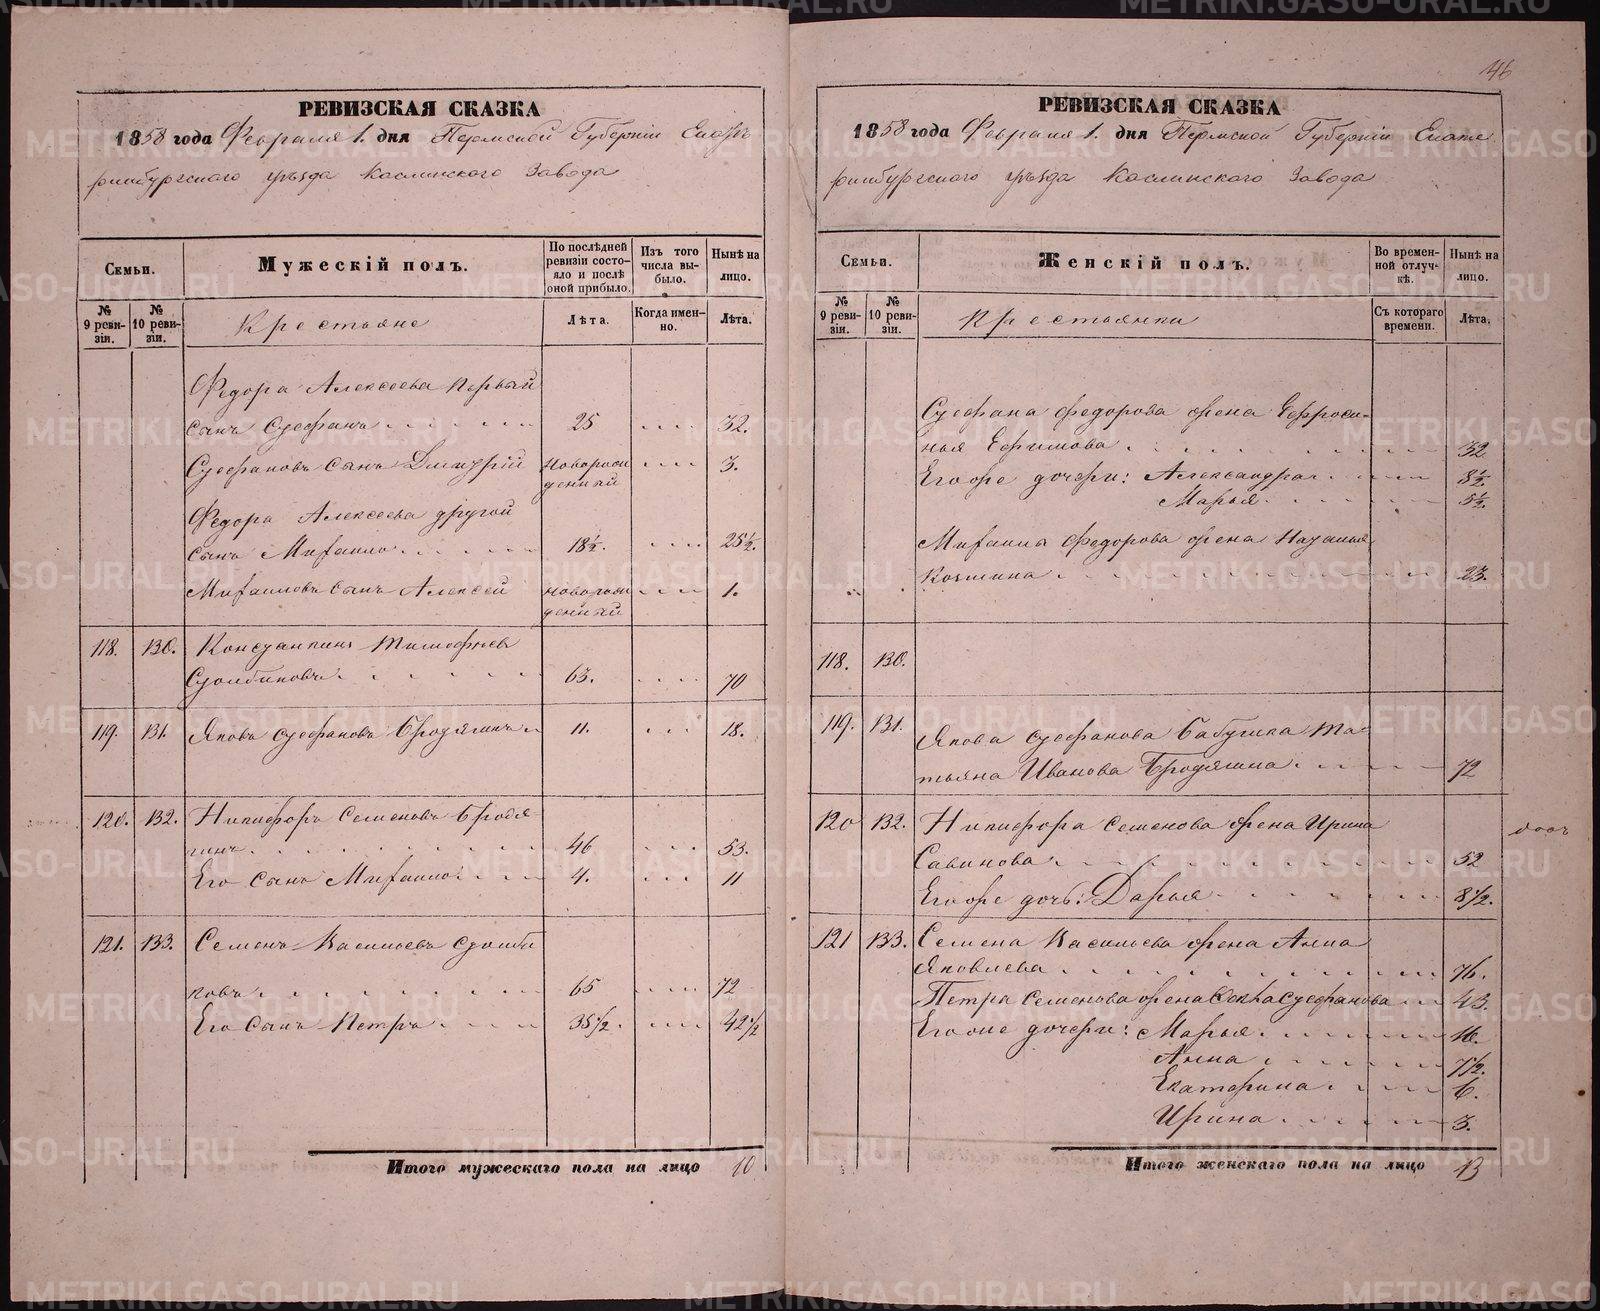 46
РЕВИЗСКАЯ СКАЗКА
1858 года Февраля 1. дня Пермской Губерніи Екате
ринбургскаго уѣзда Каслинскаго Завода
Семьи.
Мужескій полъ.
По послѣдней ревизіи состояло и послѣ оной прибыло.
Изъ того числа выбыло.
Нынѣ на лицо.
№ 9 ревизіи.
№ 10 ревизіи.
Крестьяне
Лѣта.
Когда именно.
Лѣта.
Федора Алексеева первый
сынъ Стефанъ 25 32.
Стефановъ сынъ Дмитрій новорож 3.
денный
Федора Алексеева другой
сынъ Михаило 18½. 25½.
Михаиловъ сынъ Алексей новорож 1.
денный
118. 130. Константинъ Тимофѣевъ
Столбиковъ 63. 70
119. 131. Яковъ Стефановъ Бродягинъ 11. 18.
120. 132. Никифоръ Семеновъ Бродя-
гинъ 46 53.
Его сынъ Михаило 4. 11
121. 133. Семенъ Васильевъ Столби
ковъ 65 72
Его сынъ Петръ 35½. 42½
Итого мужескаго пола на лицо 10
РЕВИЗСКАЯ СКАЗКА
1858 года Февраля 1. дня Пермской Губерніи Екате
ринбургскаго уѣзда Каслинскаго Завода
Семьи.
Женскій полъ.
Во временной отлучкѣ.
Нынѣ на лицо.
№ 9 ревизіи.
№ 10 ревизіи.
Крестьянки
Съ котораго времени.
Лѣта.
Стефана Федорова жена Ефроси-
нья Ефимова 32
Егоже дочери: Александра 8½.
Марья 5½.
Михаила Федорова жена Наталья
Козмина 23.
118. 130.
119. 131. Якова Стефанова бабушка Та-
тьяна Иванова Бродягина 72
120 132. Никифора Семенова жена Ирина
Савинова 52
Егоже дочь: Дарья 8½.
121 133. Семена Васильева жена Анна
Яковлева 76.
Петра Семенова жена Стефанова 43.
Егоже дочери: Марья 16.
Анна 7½.
Екатерина 6.
Ирина 3.
Итого женскаго пола на лицо 13
METRIKI.GASO-URAL.RU